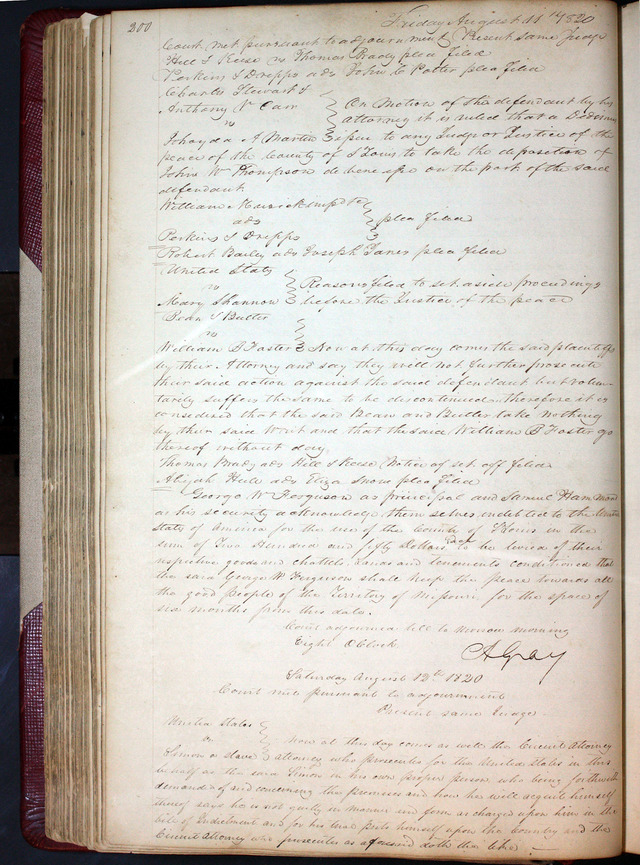 200 Friday August 11th 1820
Court met pursuant to adjournment Present same Judge
Hill & Keese vs Thomas Brady plea filed
Perkins & Dripps ads John C Potter plea filed
Charles Stewart &
Anthony V Carr
vs
On Motion of the defendant by his
attorney it is ruled that a Dedimus
A Martin issue to any Judge or Justice of the
peace of the County of St Louis to take the deposition of
John W Thompson de bene esse on the part of the said
defendant
William Musick
ads plea filed
Perkins & Dripps
Robert Bailey ads Joseph plea filed
United States
vs Reasons filed to set aside proceedings
Mary Shannon before the Justice of the peace
Bean & Butler
vs
William B Foster Now at this day comes the said plaintiffs
by their Attorney and say they will not further prosecute
their said action against the said defendant but volun-
tarily suffers the same to be discontinued therefore it is
considered that the said Bean and Butler take nothing
by their said Writ and that the said William B Foster go
thereof without day
Thomas Brady ads Hill & Keese Notice of set off filed
Abijah Hull ads Eliza Snow plea filed
George W Ferguson as principal and Samuel Hammond
as his security acknowledge them selves indebted to the United
States of America for the use of the County of St Louis in the
sum of Two Hundred and fifty Dollars each to be levied of their
respective goods and chattels Lands and tenements conditioned that
the said George W Ferguson shall keep the peace towards all
the good people of the Territory of Missouri for the space of
six months from this date.
Court adjourned till to morrow morning
Eight OClock
A Gray
Saturday August 12th 1820
Court met pursuant to adjournment
Present same Judge
United States
vs Now at this day comes as well the Circuit Attorney
Simon a Slave attorney who prosecutes for the United States in this
behalf as the said Simon in his own proper person who being forthwith
demanded of and concerning the premises and how he will acquit himself
thereof says he is not guilty in manner and form as charged upon him in the
bill of Indictment and for his trial puts himself upon the Country and the
Circuit Attorney who prosecutes as aforesaid doth the like